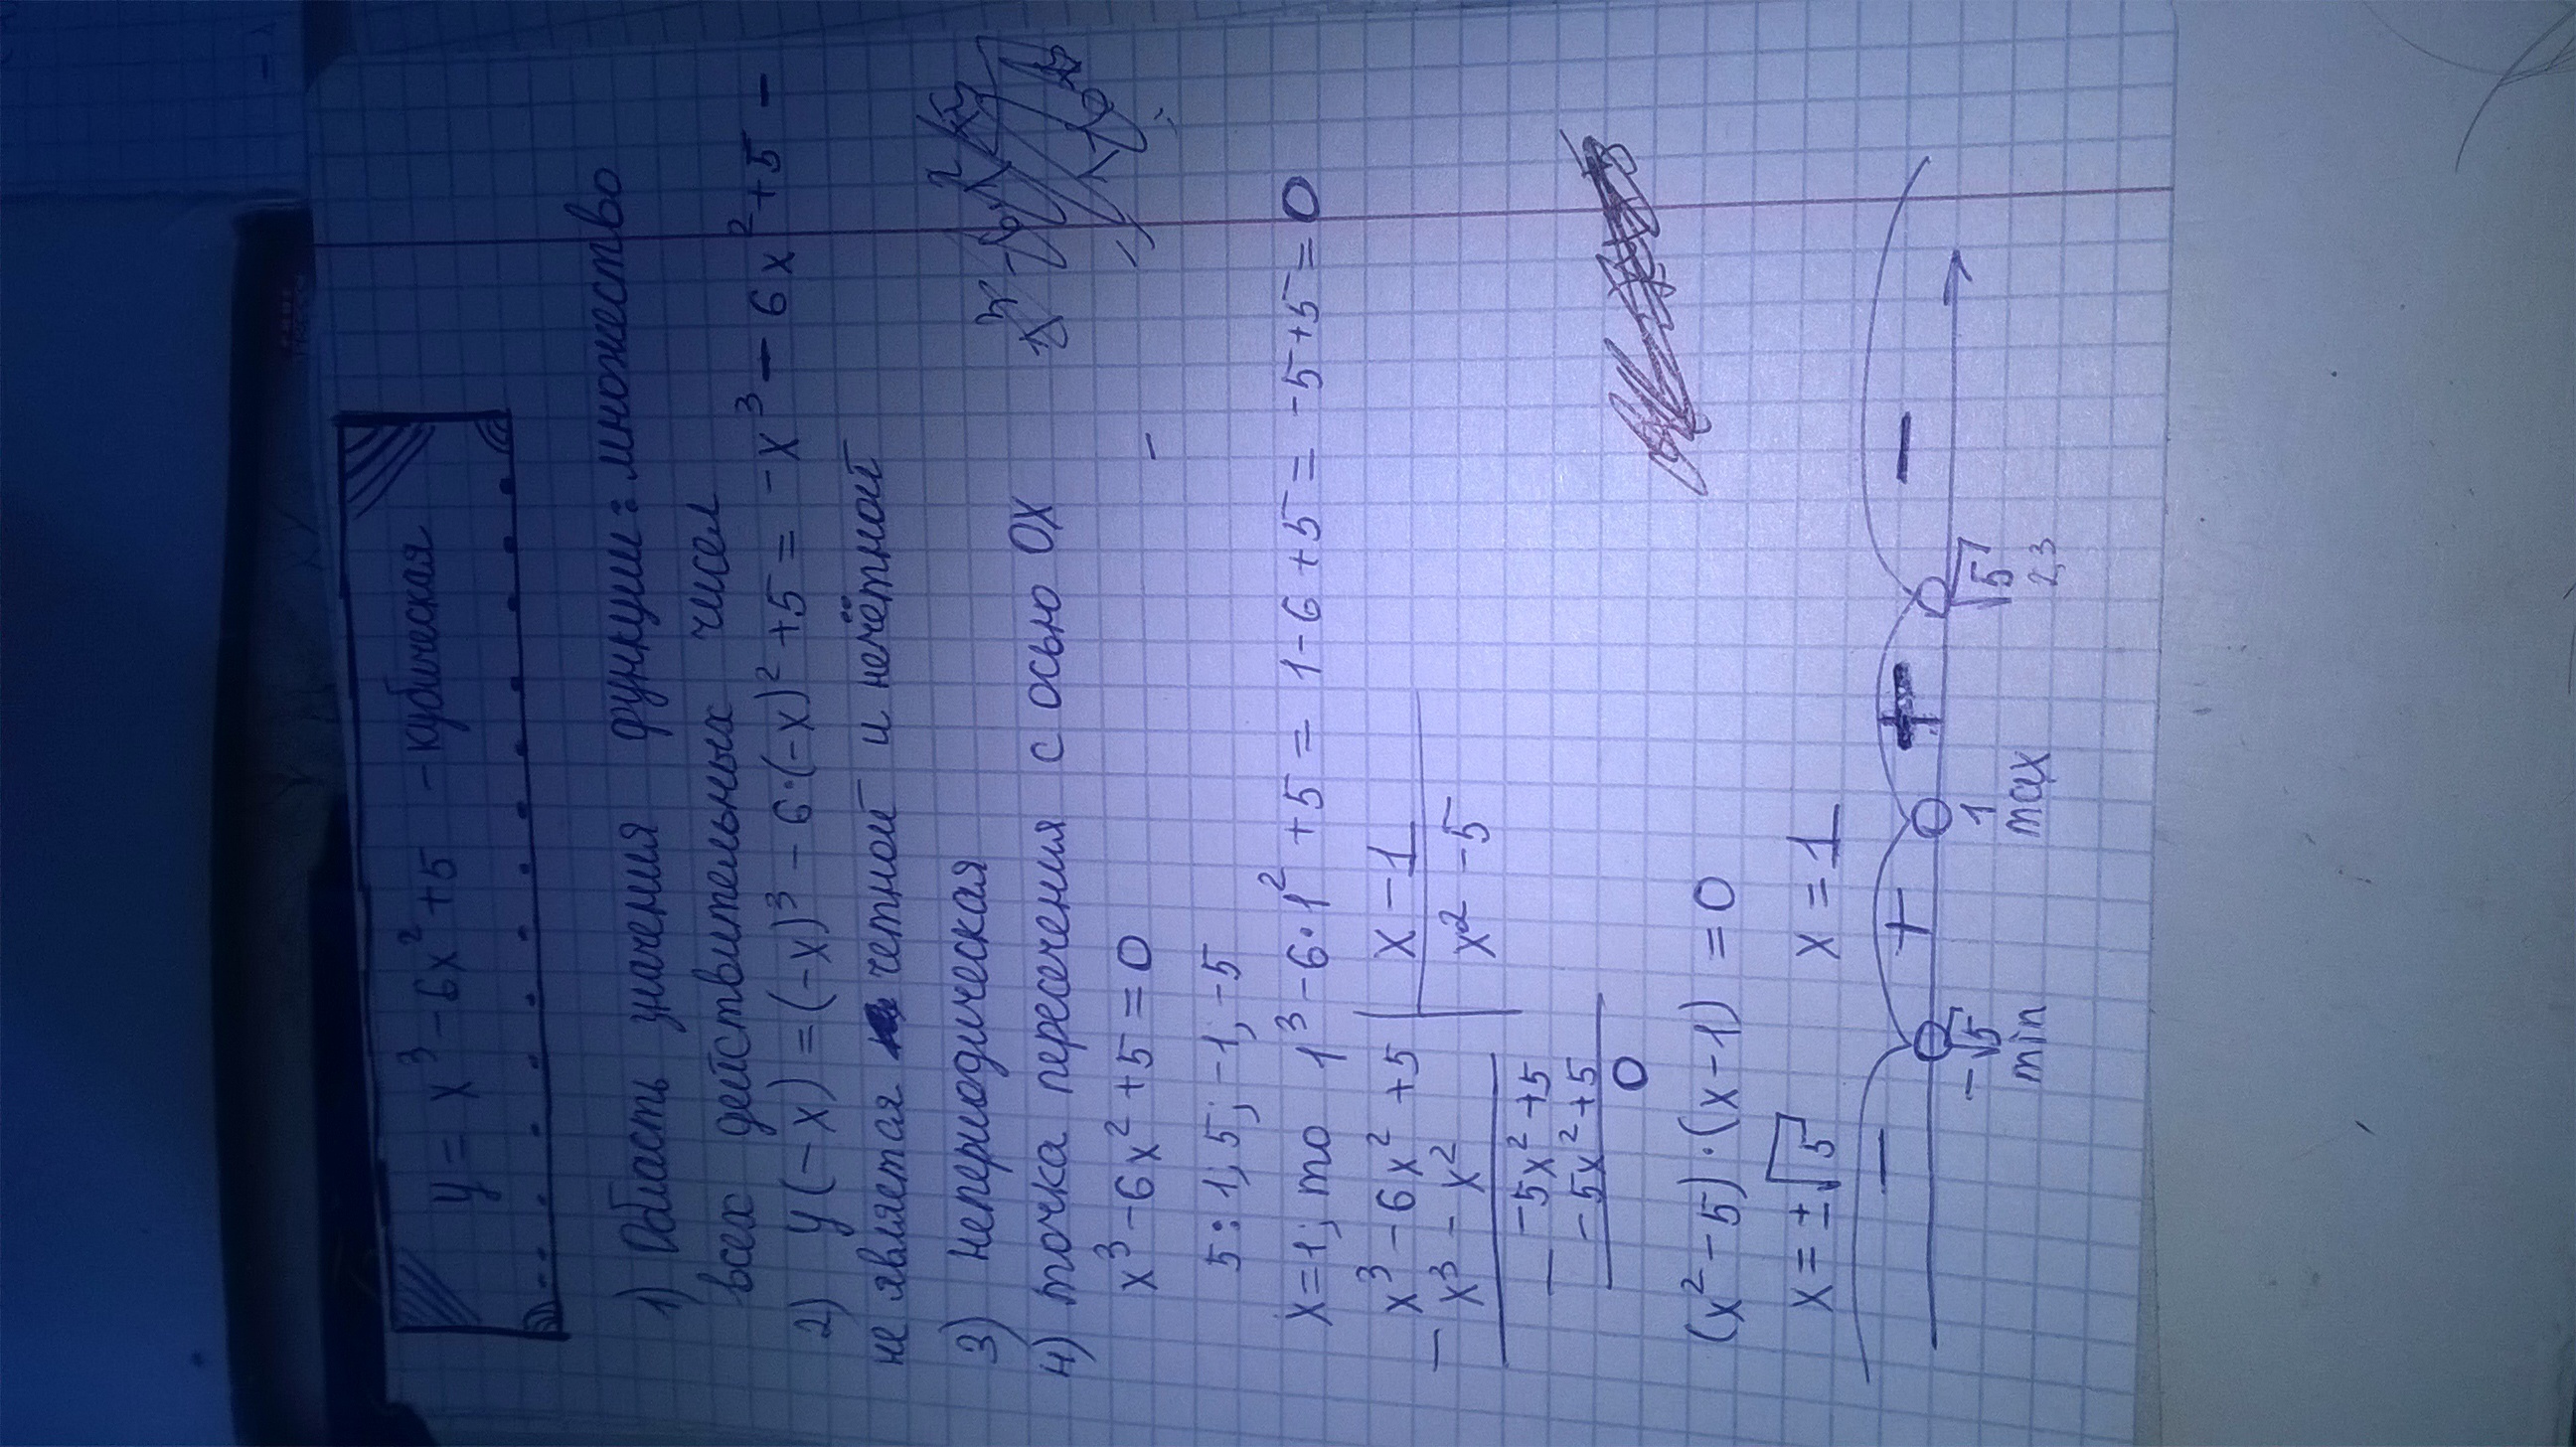 y = x³ - 6x² + 5 - кубическая
1) Область значения функции: множество
всех действительных чисел
2) y(-x) = (-x)³ - 6·(-x)² + 5 = -x³ - 6x² + 5 -
не является четной и нечётной
3) непериодическая
4) точка пересечения с осью OX
x³ - 6x² + 5 = 0
5: 1; 5; -1; -5
x = 1; то 1³ - 6·1² + 5 = 1 - 6 + 5 = -5 + 5 = 0
x³ - 6x² + 5 | x - 1
- x³ - x² | x² - 5
- -5x² + 5
-5x² + 5
0
(x² - 5)·(x - 1) = 0
x = ±√5 x = 1
- + + -
-√5 1 √5
min max 2,3